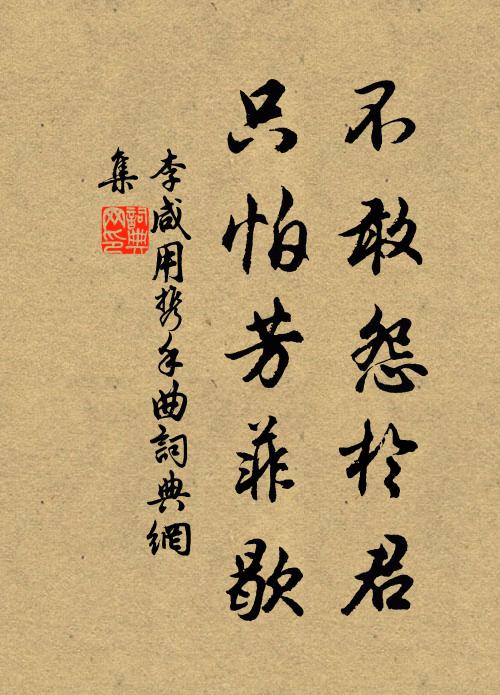 不敢怨於君
只怕芳菲歇
李咸用携手曲詞典網
集
詞典
网印